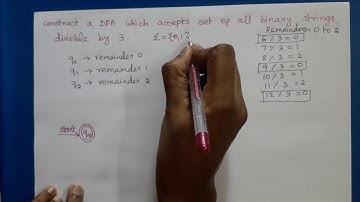 Construct a DFA which accepts set of all binary strings,
divisible by 3. Σ={0,1}
Remainders = 0 to 2
6 % 3 = 0
7 % 3 = 1
8 % 3 = 2
9 % 3 = 0
10 % 3 = 1
11 % 3 = 2
12 % 3 = 0
q0 → remainder 0
q1 → remainder 1
q2 → remainder 2
start
q0